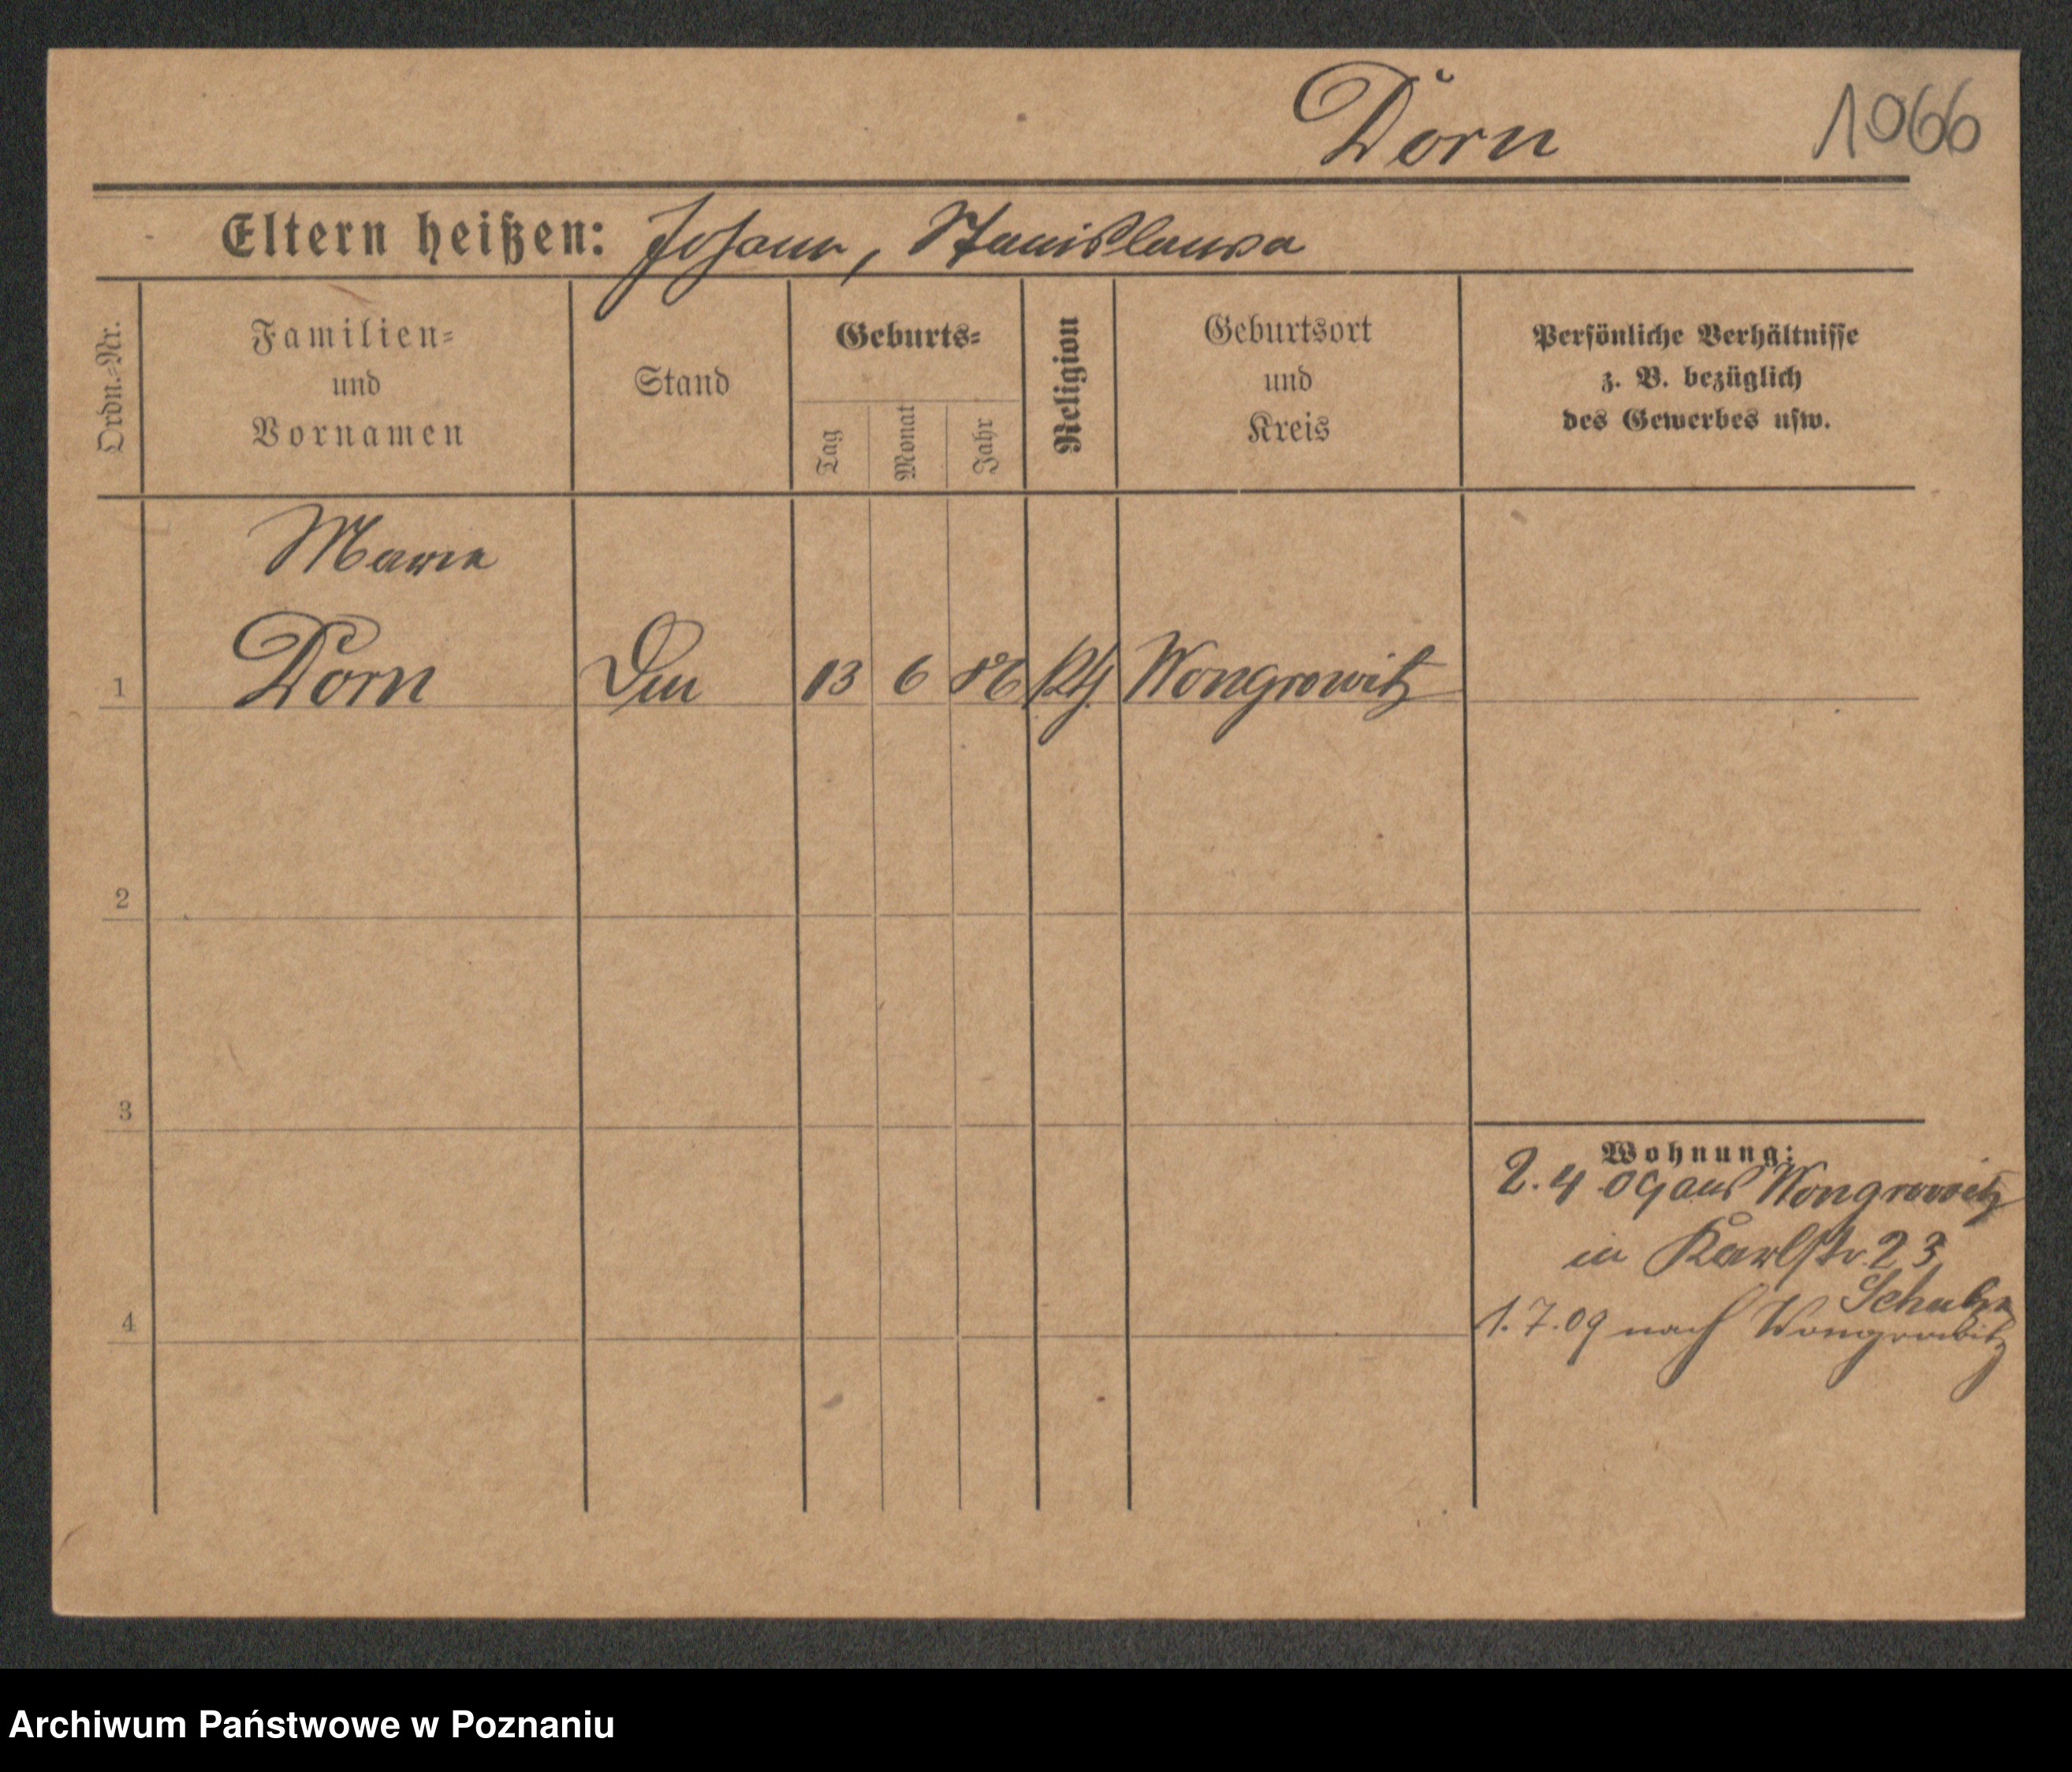 Dorn 1066
Eltern heißen: Johann, Stanislawa
Ordn.-Nr.
Familien-
und
Vornamen
Stand
Geburts-
Tag
Monat
Jahr
Religion
Geburtsort
und
Kreis
Persönliche Verhältnisse
z. B. bezüglich
des Gewerbes usw.
Marie
1 Dorn 13 6 86 Kth. Wongrowitz
2
3
Wohnung:
2.4.09 aus Wongrowitz
in Karlstr. 23
4
1.7.09 nach Wongrowitz
Archiwum Państwowe w Poznaniu